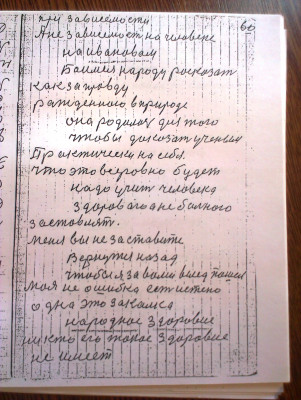 при зависемости 60
А не зависемост на человеке
на ивановам
Баимся народу росказат
как за правду
рожденного в природе
она родилас для того
чтобы доказат ученым
Практически на себя
что это всеровно будет
надо учит человека
здорового а не болного
заставлят.
меня вы не заставите
Вернутся назад
чтобы я за вами вслед пошел
моя не ошибка ест истено
одна это закалка
народное здоровие
никто его такое здоровие
не имеет